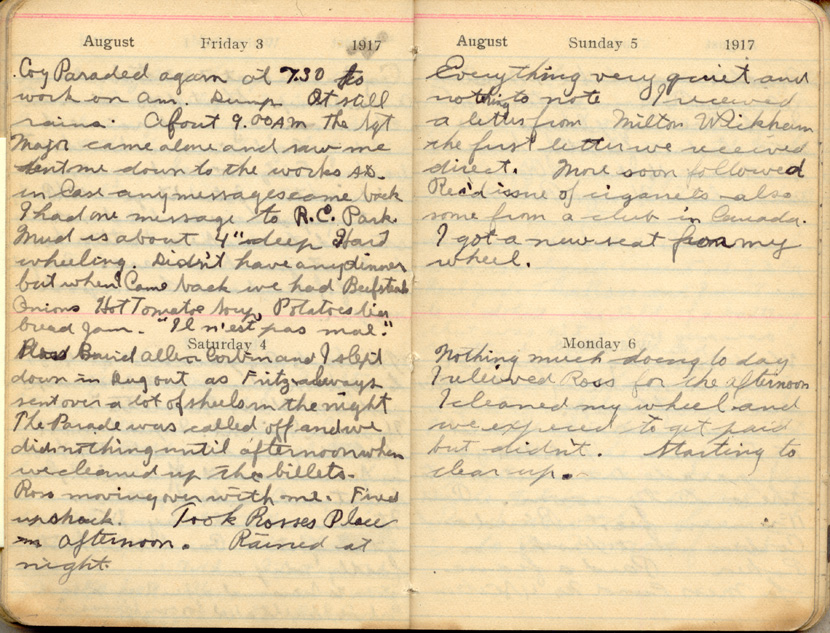 August Friday 3 1917
Coy Paraded again at 7.30 to
work on Am. Dump It still
rains. About 9.00 AM the Sgt
Major came alone and saw me
sent me down to the works st.
in Case any messages come back
I had one message to R.C. Park.
Mud is about 4" deep Hard
wheeling. Didn't have any dinner
but when I Came back we had Beefsteak
Onions Hot Tomatoe Soup, Potatoes
bread Jam. "Il n'est pas mal."
Saturday 4
David Allen Corbin and I slept
down in Dugout as Fritz always
sent over a lot of shells in the night
The Parade was called off and we
did nothing until afternoon when
we cleaned up the billets.
Ross moving over with me. Fixed
up shack. Took Rosses Place
in afternoon. Rained at
night.
August Sunday 5 1917
Everything very quiet and
nothing to note I received
a letter from Milton Wickham
the first letter we received
direct. More soon followed
Rec'd issue of cigarets also
some from a club in Canada.
I got a new seat for my
wheel.
Monday 6
Nothing much doing to day
I relieved Ross for the afternoon
I cleaned my wheel and
we expected to get paid
but didn't. Starting to
clear up.